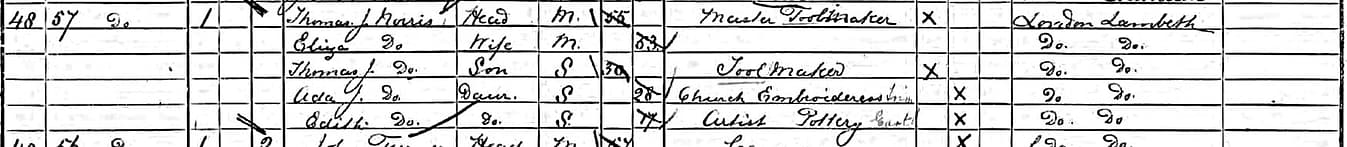 48 57 Do 1 Thomas J. Morris Head M. 55 Master Toolmaker X London Lambeth
Eliza Do Wife M. 53 Do. Do.
Thomas J. Do. Son S 30 Tool Maker X Do. Do.
Ada J. Do. Daur. S 28 Church Embroideress X Do Do.
Edith Do. Do. S Artist Pottery X Do. Do
Head